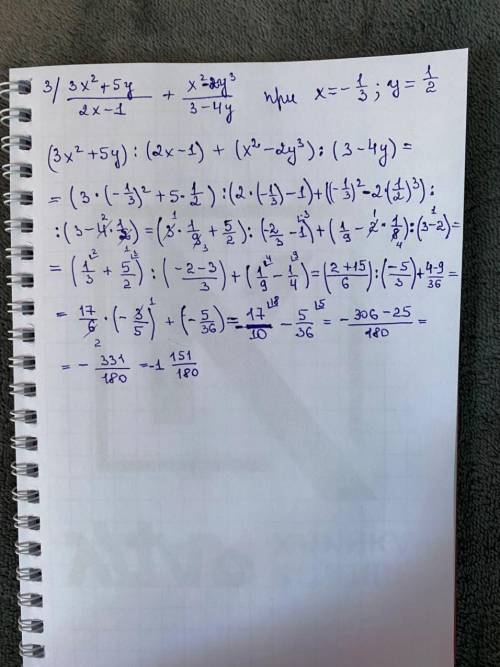 3/ (3x²+5y)/(2x-1) + (x²-2y³)/(3-4y) при x=-1/3; y=1/2
(3x²+5y):(2x-1)+(x²-2y³):(3-4y)=
=(3·(-1/3)²+5·1/2):(2·(-1/3)-1)+((-1/3)²-2·(1/2)³):
:(3-4·1/2)=(3·1/9+5/2):(-2/3-1)+(1/9-2·1/8):(3-2)=
=(1/3+5/2):(-2-3)/3+(1/9-1/4)=(2+15)/6:(-5/3)+(4-9)/36=
=17/6·(-3/5)+(-5/36)=-17/10-5/36=(-306-25)/180=
=-331/180=-1 151/180